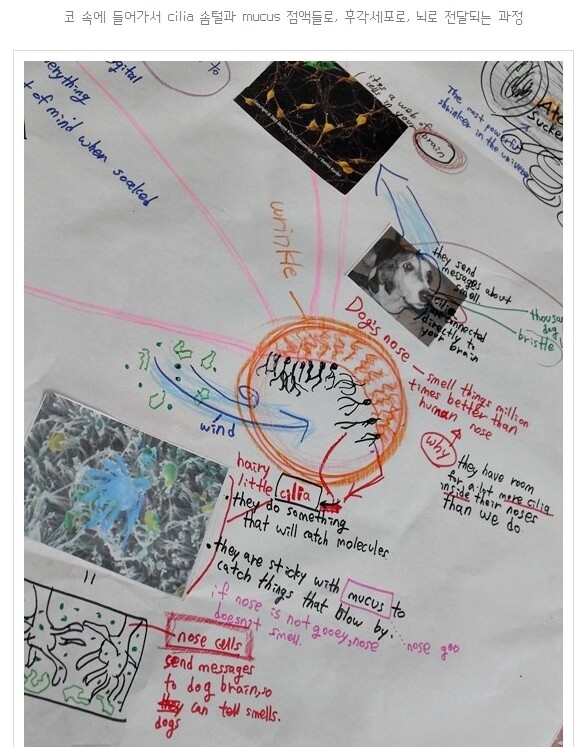 코 속에 들어가서 cilia 솜털과 mucus 점액들로, 후각세포로, 뇌로 전달되는 과정
everything
t of mind when soaked
igital
to
it's a web of
cells in your brain
The most powerful
shrinker in the universe
sucker
wrinkle
they send
messages about
smell.
cilia
connected
directly to
your brain
thousa
dog
bristle
Dog's nose — smell things million
times better than
human nose
why
they have room
for a lot more cilia
inside their noses
than we do.
wind
hairy
little cilia
they do something
that will catch molecules
• they are sticky with mucus to
catch things that blow by.... nose goo
if nose is not gooey, nose
doesn't smell.
nose cells
send messages
to dog brain, so
they can tell smells.
dogs